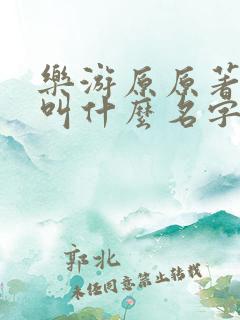 樂游原原著
叫什麼名字
郭北
未经同意禁止转载